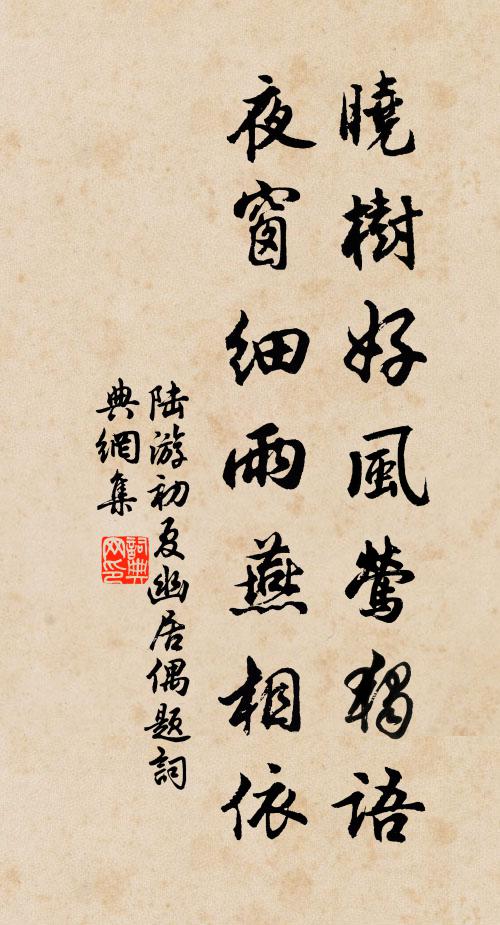 曉樹好風鶯獨語
夜窗細雨燕相依
陸游初夏幽居偶題詞
典網集
詞典
网印